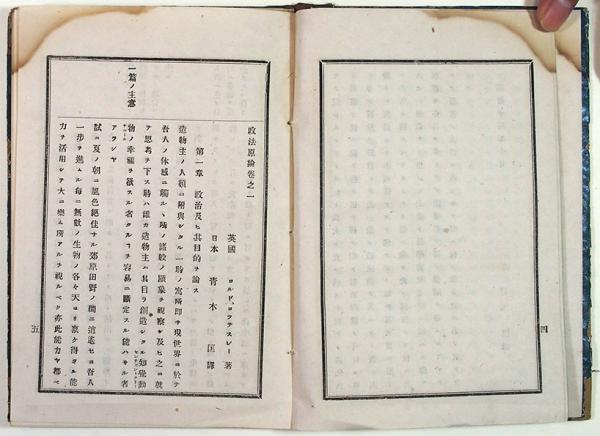 政法原論卷之一
英國 ロルド、ロツテスレー 著
日本 青木 匡 譯
第一章 政治及ヒ其目的ヲ論ス
一篇ノ主意
造物主ノ人類ニ附與シタル一時ノ寓所即チ現世界ニ於テ
吾人ノ体感ニ觸ルヽ
ノ諸般ノ顯象ヲ視察シ及ヒ之ニ就
テ思考ヲ下ス時ハ誰カ造物主ハ其自ラ創造シタル知覺動
物ノ幸福ヲ欲スル者タルコヲ容易ニ斷定スル能ハサル者
アランヤ
試ニ夏ノ朝ニ風色絕佳ナル郊原田野ノ間ニ逍遙セヨ吾人
一步ヲ進ムル每ニ無數ノ生物ノ各々天ヨリ稟ケ得タル能
力ヲ活用シテ大ニ樂ム所アルヲ視ルヘク亦此能力ヤ都ヘ
五
四